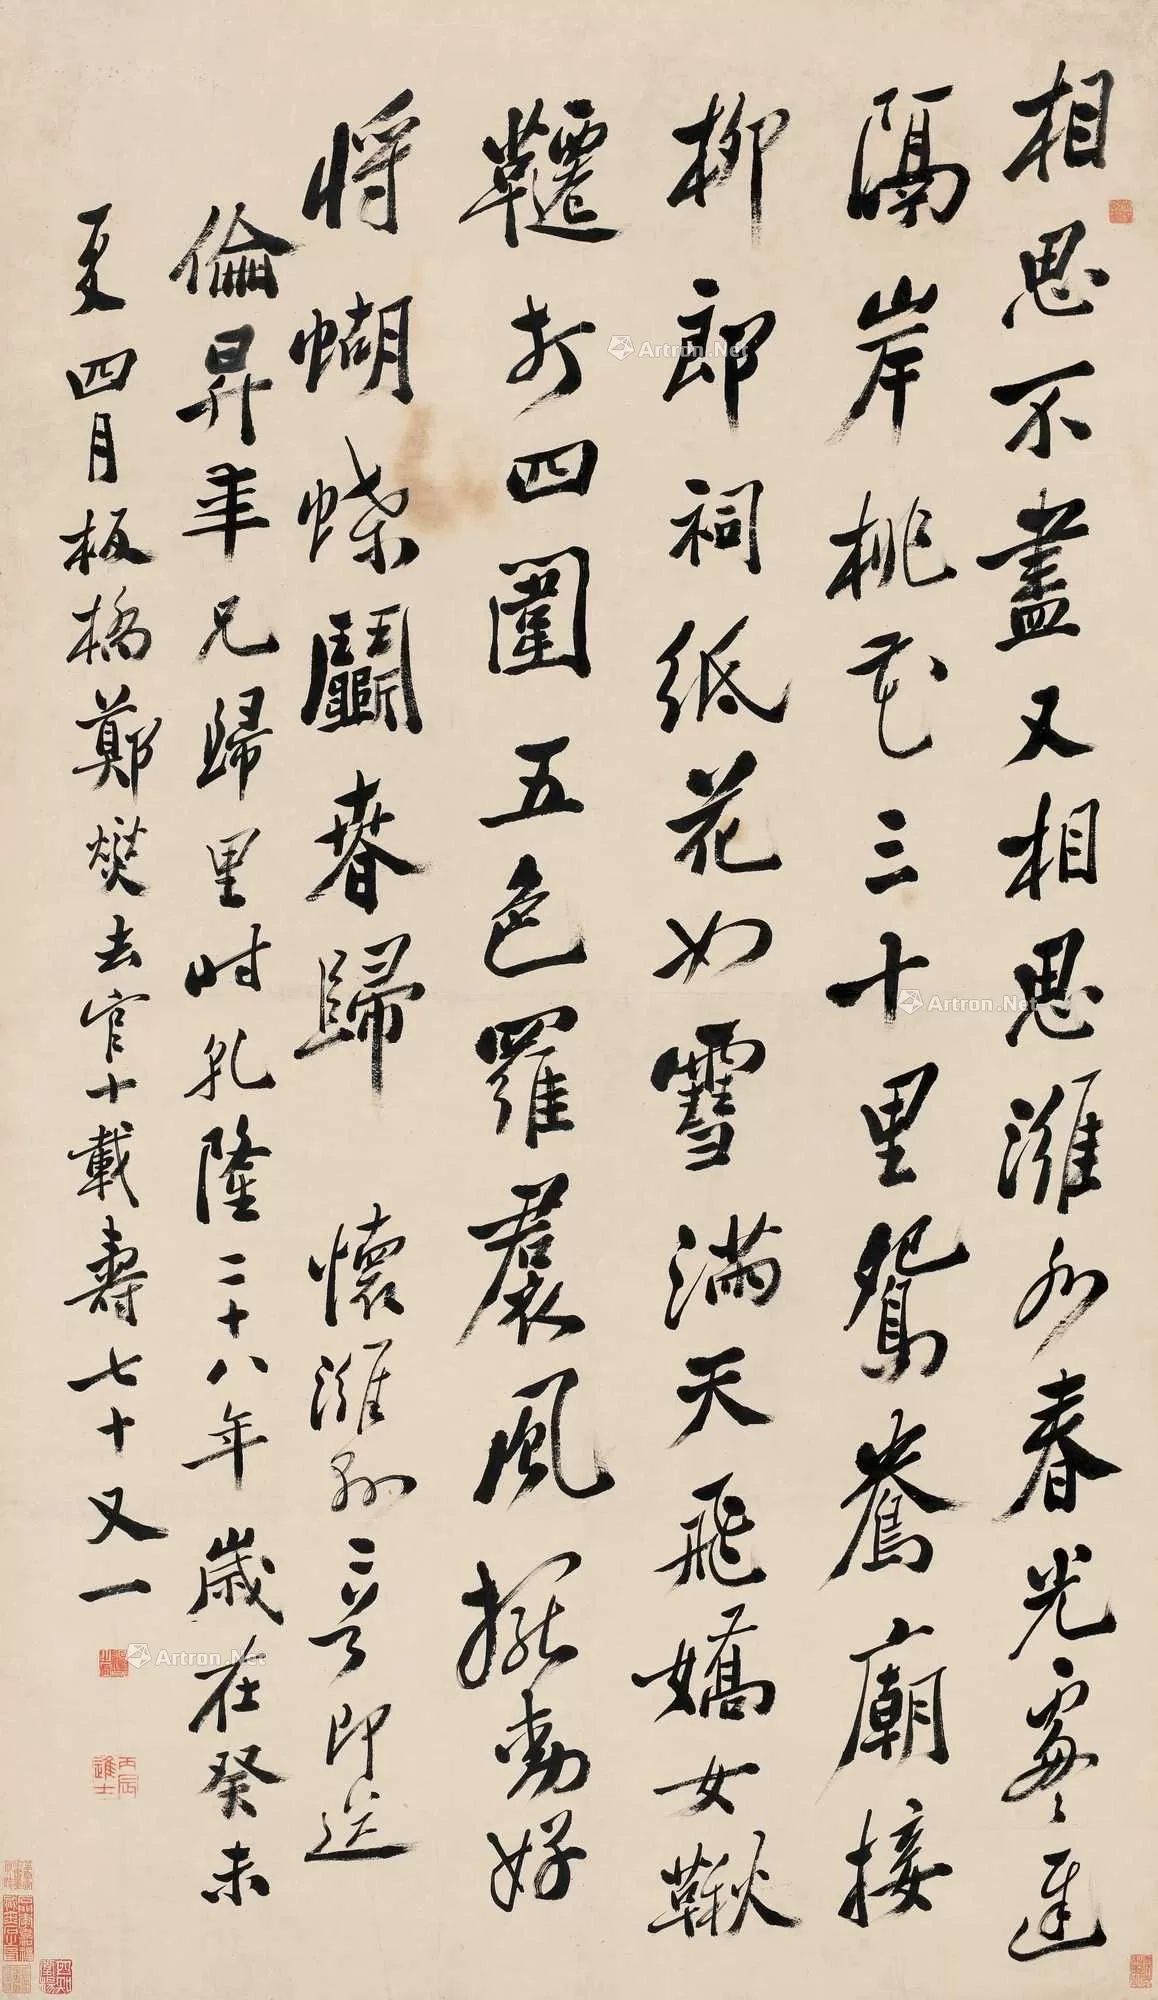 相思不盡又相思濰水春光處處遲
隔岸桃花三十里鴛鴦廟接
柳郎祠紙花如雪滿天飛嬌女鞦
韆打四圍五色羅裙風擺動好
將蝴蝶鬭春歸 懷濰縣二首即送
倫昇年兄歸里時乾隆二十八年歲在癸未
夏四月板橋鄭燮去官十載壽七十又一
丙辰進士
Artron.Net
Artron.Net
Artron.Net